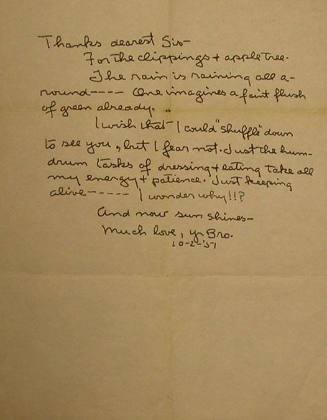 Thanks dearest Sis-
For the clippings + apple tree.
The rain is raining all a-
round---- One imagines a faint flush
of green already.
I wish that I could "shuffle" down
to see you, but I fear not. Just the hum-
drum taskes of dressing + eating take all
my energy + patience. Just keeping
alive----- I wonder why!!?
And now sun shines-
Much love, yr Bro.
10-2-'57